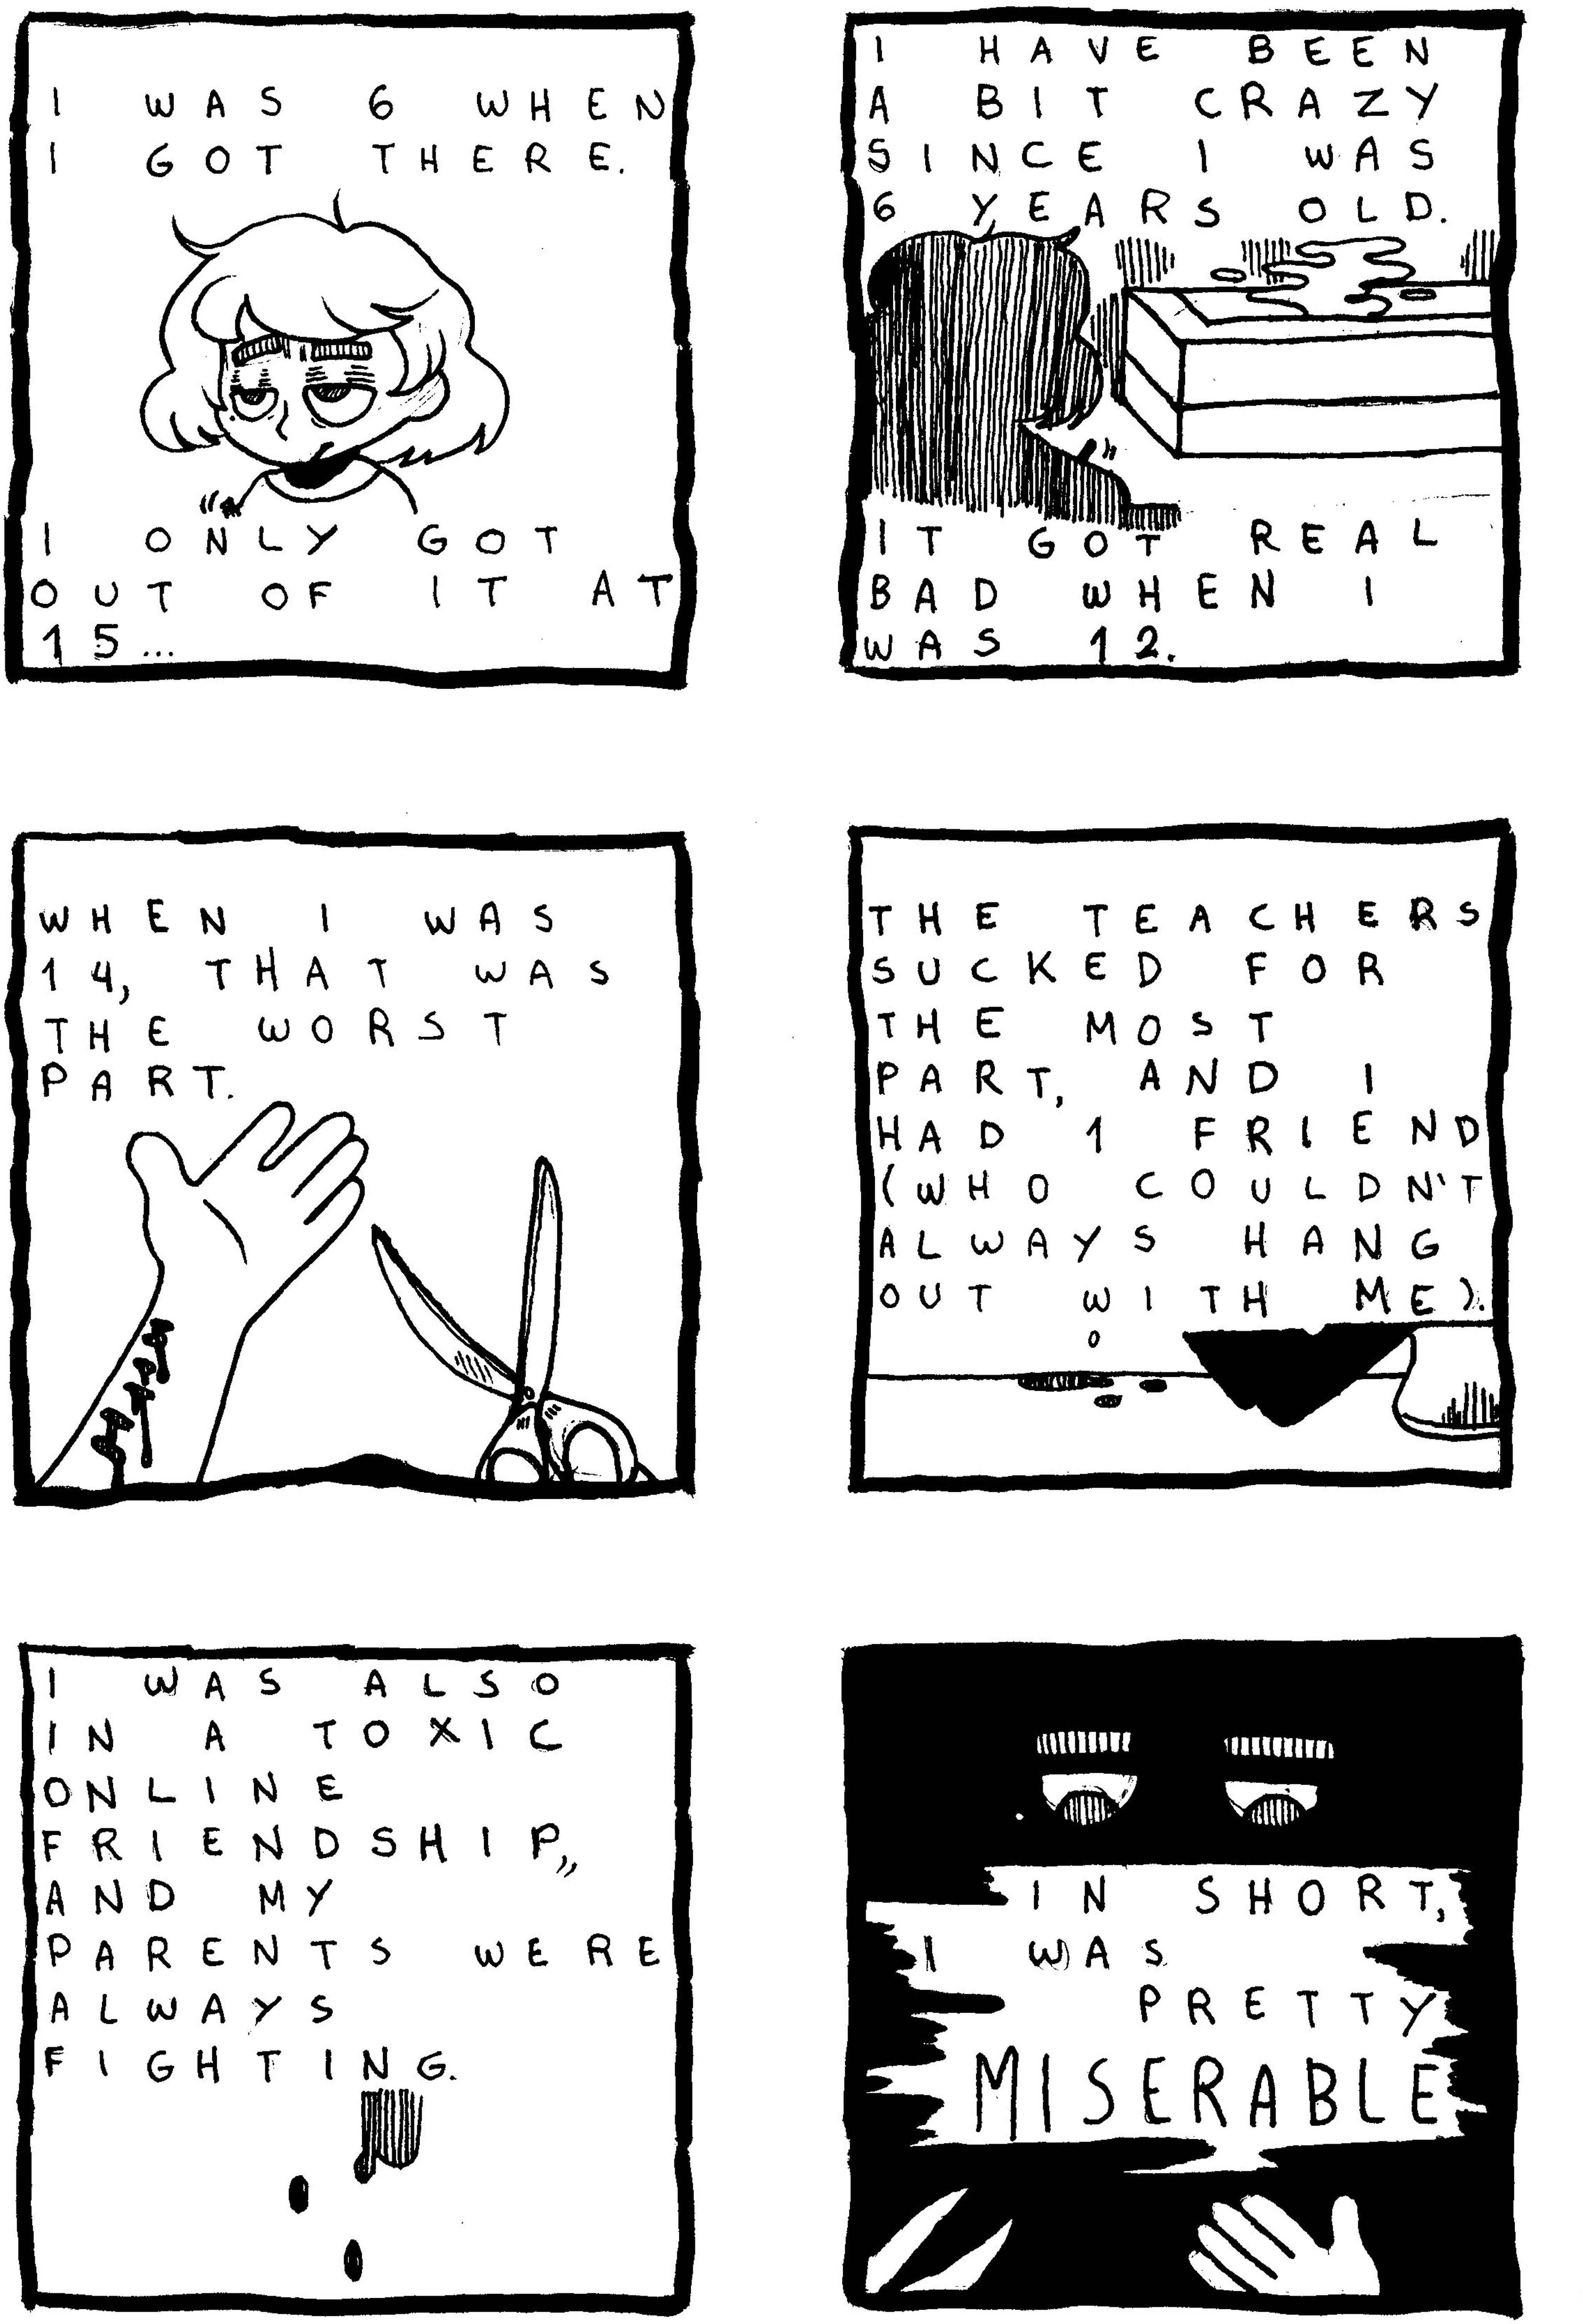 I WAS 6 WHEN
I GOT THERE.
I ONLY GOT
OUT OF IT AT
15...
I HAVE BEEN
A BIT CRAZY
SINCE I WAS
6 YEARS OLD.
IT GOT REAL
BAD WHEN I
WAS 12.
WHEN I WAS
14, THAT WAS
THE WORST
PART.
THE TEACHERS
SUCKED FOR
THE MOST
PART, AND I
HAD 1 FRIEND
(WHO COULDN'T
ALWAYS HANG
OUT WITH ME).
I WAS ALSO
IN A TOXIC
ONLINE
FRIENDSHIP,,
AND MY
PARENTS WERE
ALWAYS
FIGHTING.
IN SHORT,
I WAS
PRETTY
MISERABLE